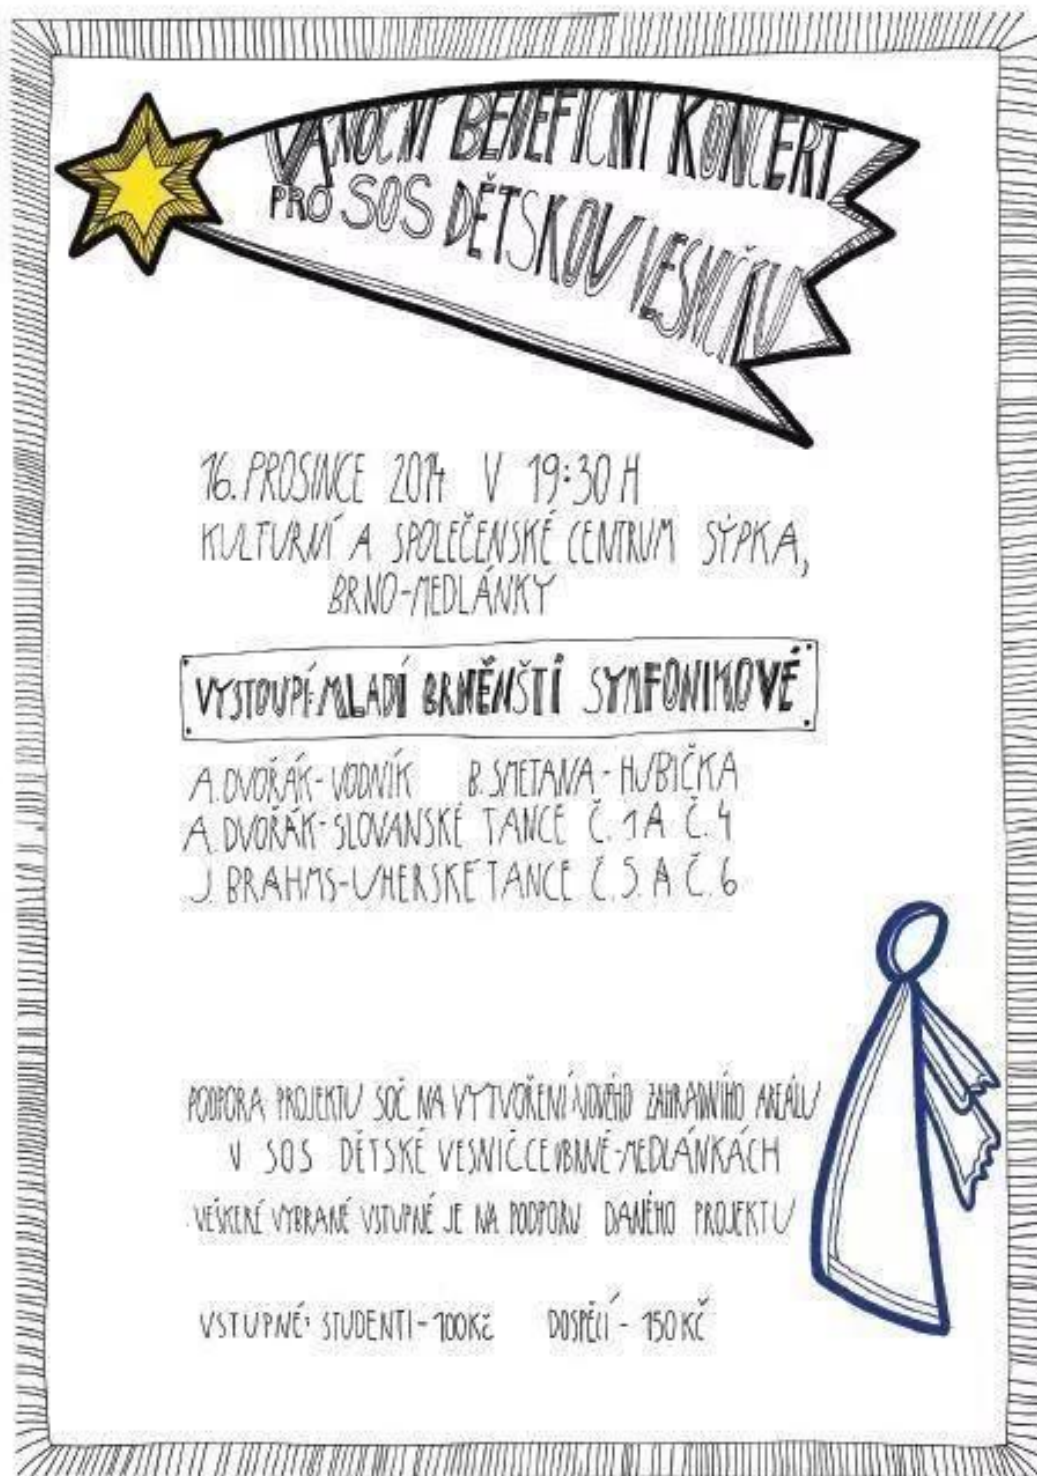 VÁNOČNÍ BENEFIČNÍ KONCERT
PRO SOS DĚTSKOU VESNIČKU
16. PROSINCE 2014 V 19:30 H
KULTURNÍ A SPOLEČENSKÉ CENTRUM SÝPKA,
BRNO-MEDLÁNKY
VYSTOUPÍ: MLADÍ BRNĚNŠTÍ SYMFONIKOVÉ
A. DVOŘÁK - VODNÍK B. SMETANA - HUBIČKA
A. DVOŘÁK - SLOVANSKÉ TANCE Č. 1 A Č. 4
J. BRAHMS - UHERSKÉ TANCE Č. 5. A Č. 6
PODPORA PROJEKTU SOČ NA VYTVOŘENÍ NOVÉHO ZAHRADNÍHO AREÁLU
V SOS DĚTSKÉ VESNIČCE V BRNĚ-MEDLÁNKÁCH
VEŠKERÉ VYBRANÉ VSTUPNÉ JE NA PODPORU DANÉHO PROJEKTU
VSTUPNÉ: STUDENTI - 100 KČ DOSPĚLÍ - 150 KČ